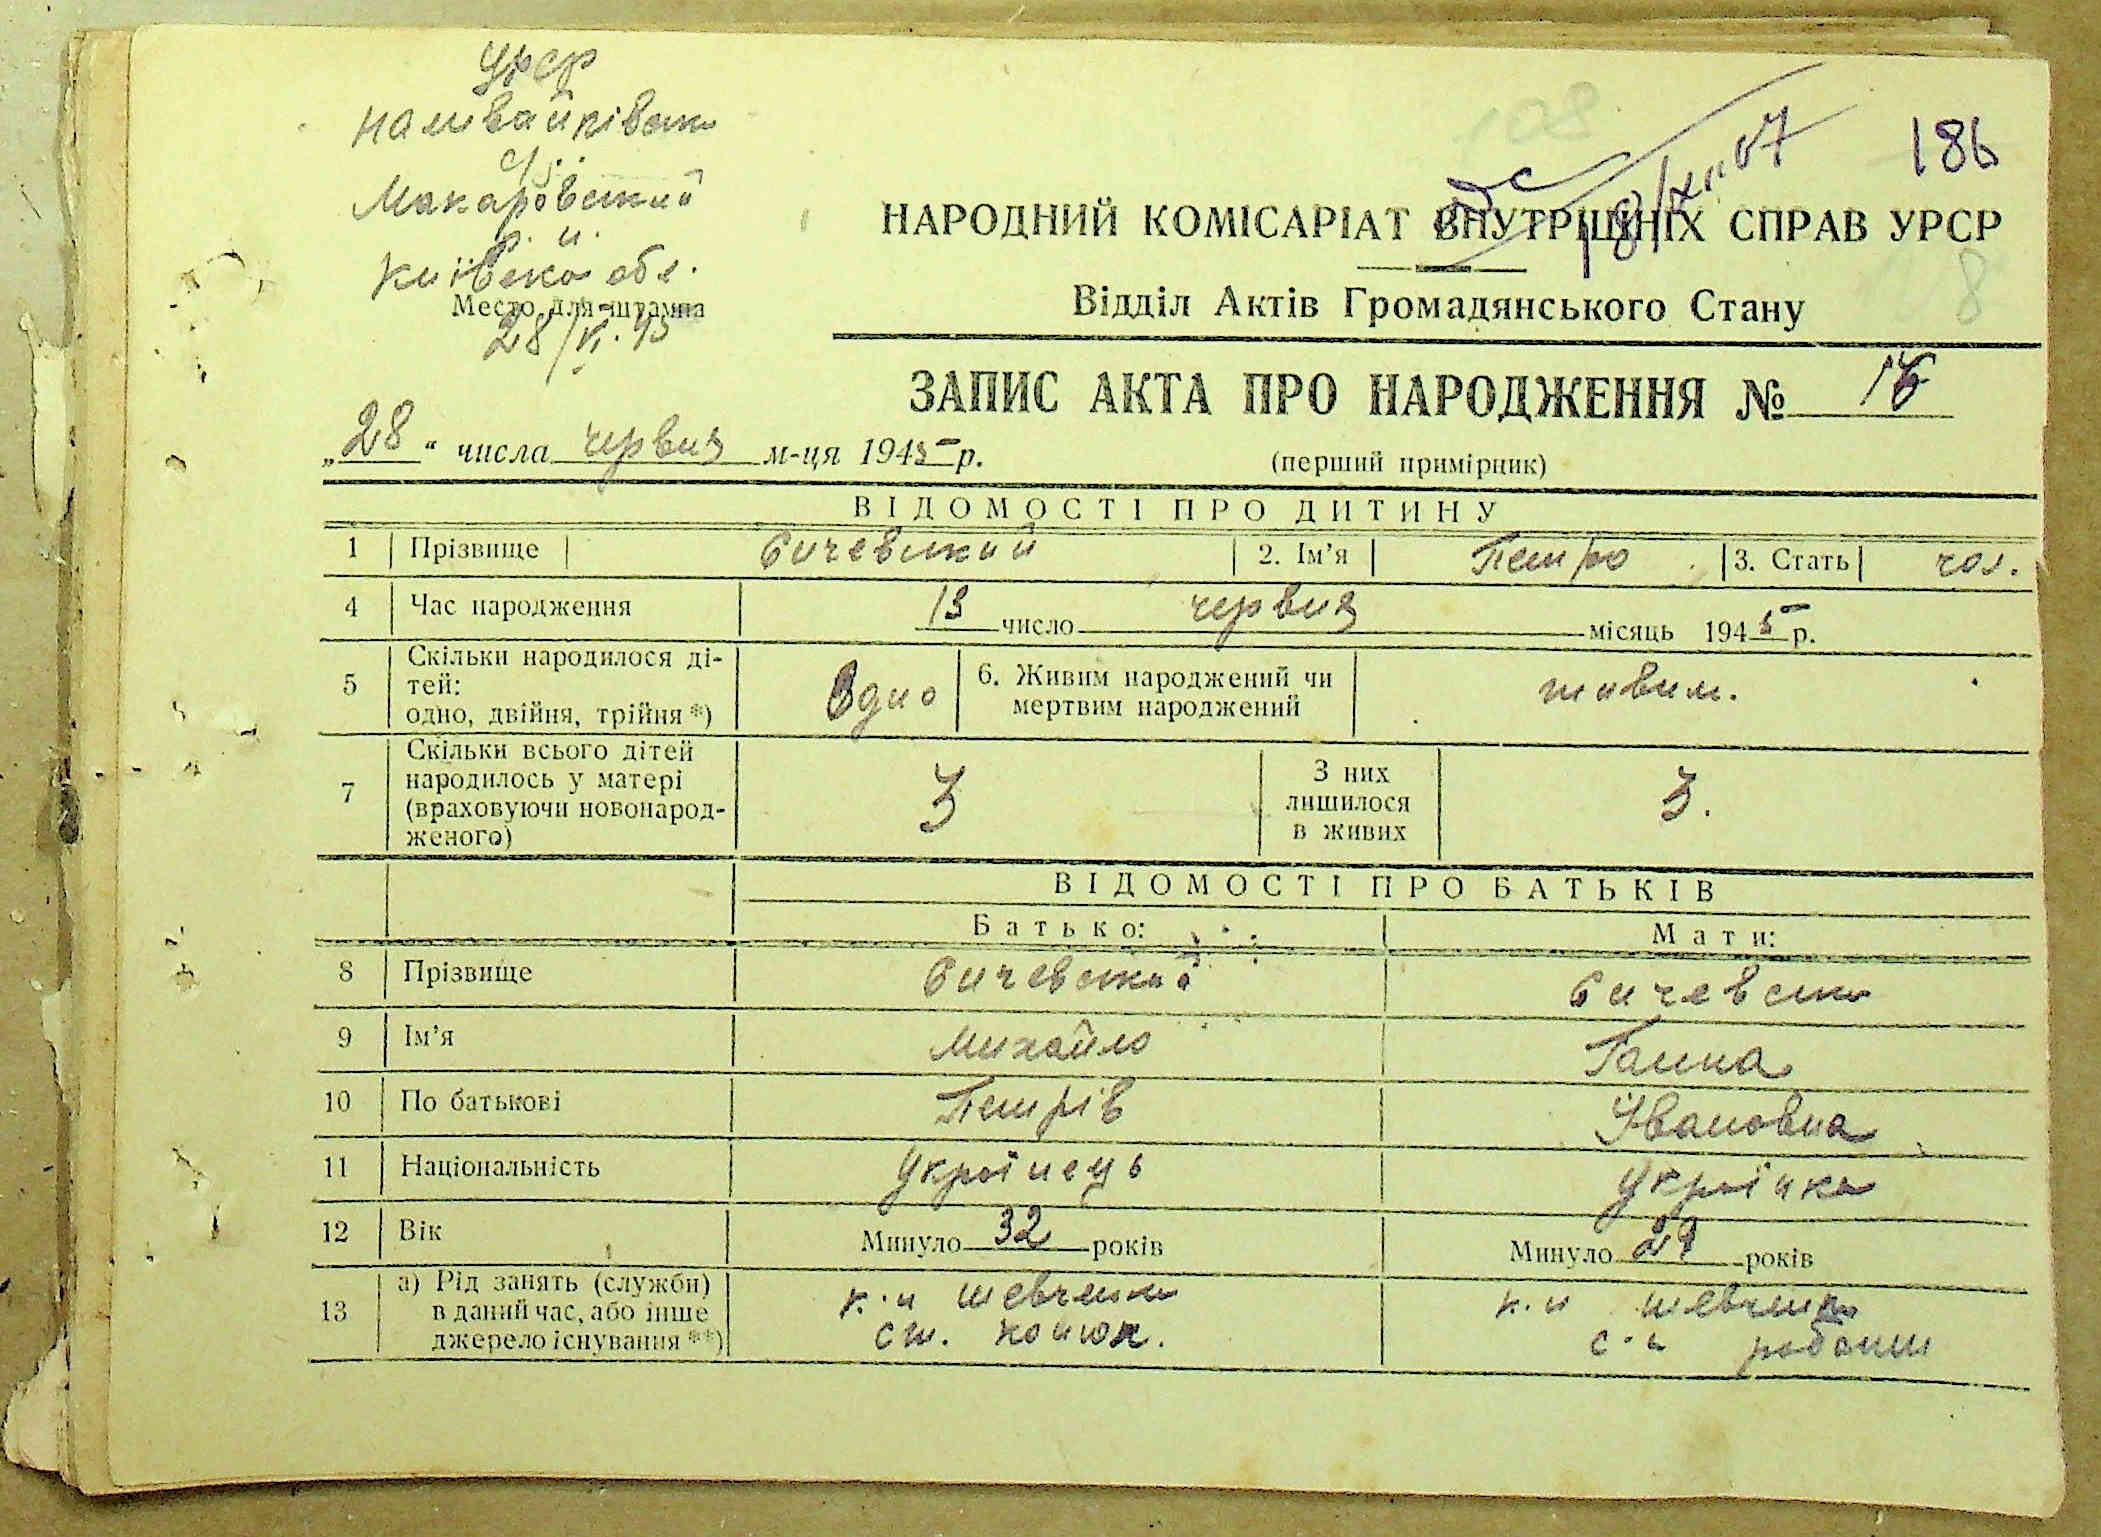 УРСР
Наливайківськ
с/р
Макарівський
р. н.
Київська обл.
Место для штампа
28/VI.45
108
18/XII.07
186
НАРОДНИЙ КОМІСАРІАТ ВНУТРІШНІХ СПРАВ УРСР
Відділ Актів Громадянського Стану
8
ЗАПИС АКТА ПРО НАРОДЖЕННЯ № 16
„28“ числа червня м-ця 1945 р.
(перший примірник)
ВІДОМОСТІ ПРО ДИТИНУ
1 Прізвище Сичевський 2. Ім’я Петро 3. Стать чол.
4 Час народження 13 число червня місяць 1945 р.
5 Скільки народилося ді-
тей:
одно, двійня, трійня *) Одно 6. Живим народжений чи
мертвим народжений живим.
7 Скільки всього дітей
народилось у матері
(враховуючи новонарод-
женого) 3 З них
лишилося
в живих 3.
ВІДОМОСТІ ПРО БАТЬКІВ
Батько: Мати:
8 Прізвище Сичевський Сичевська
9 Ім’я Михайло Ганна
10 По батькові Петрів Івановна
11 Національність Українець Українка
12 Вік Минуло 32 років Минуло 29 років
13 а) Рід занять (служби)
в даний час, або інше
джерело існування **)
к. п Шевченка к. п Шевченка
ст. конюх. с. г робоит